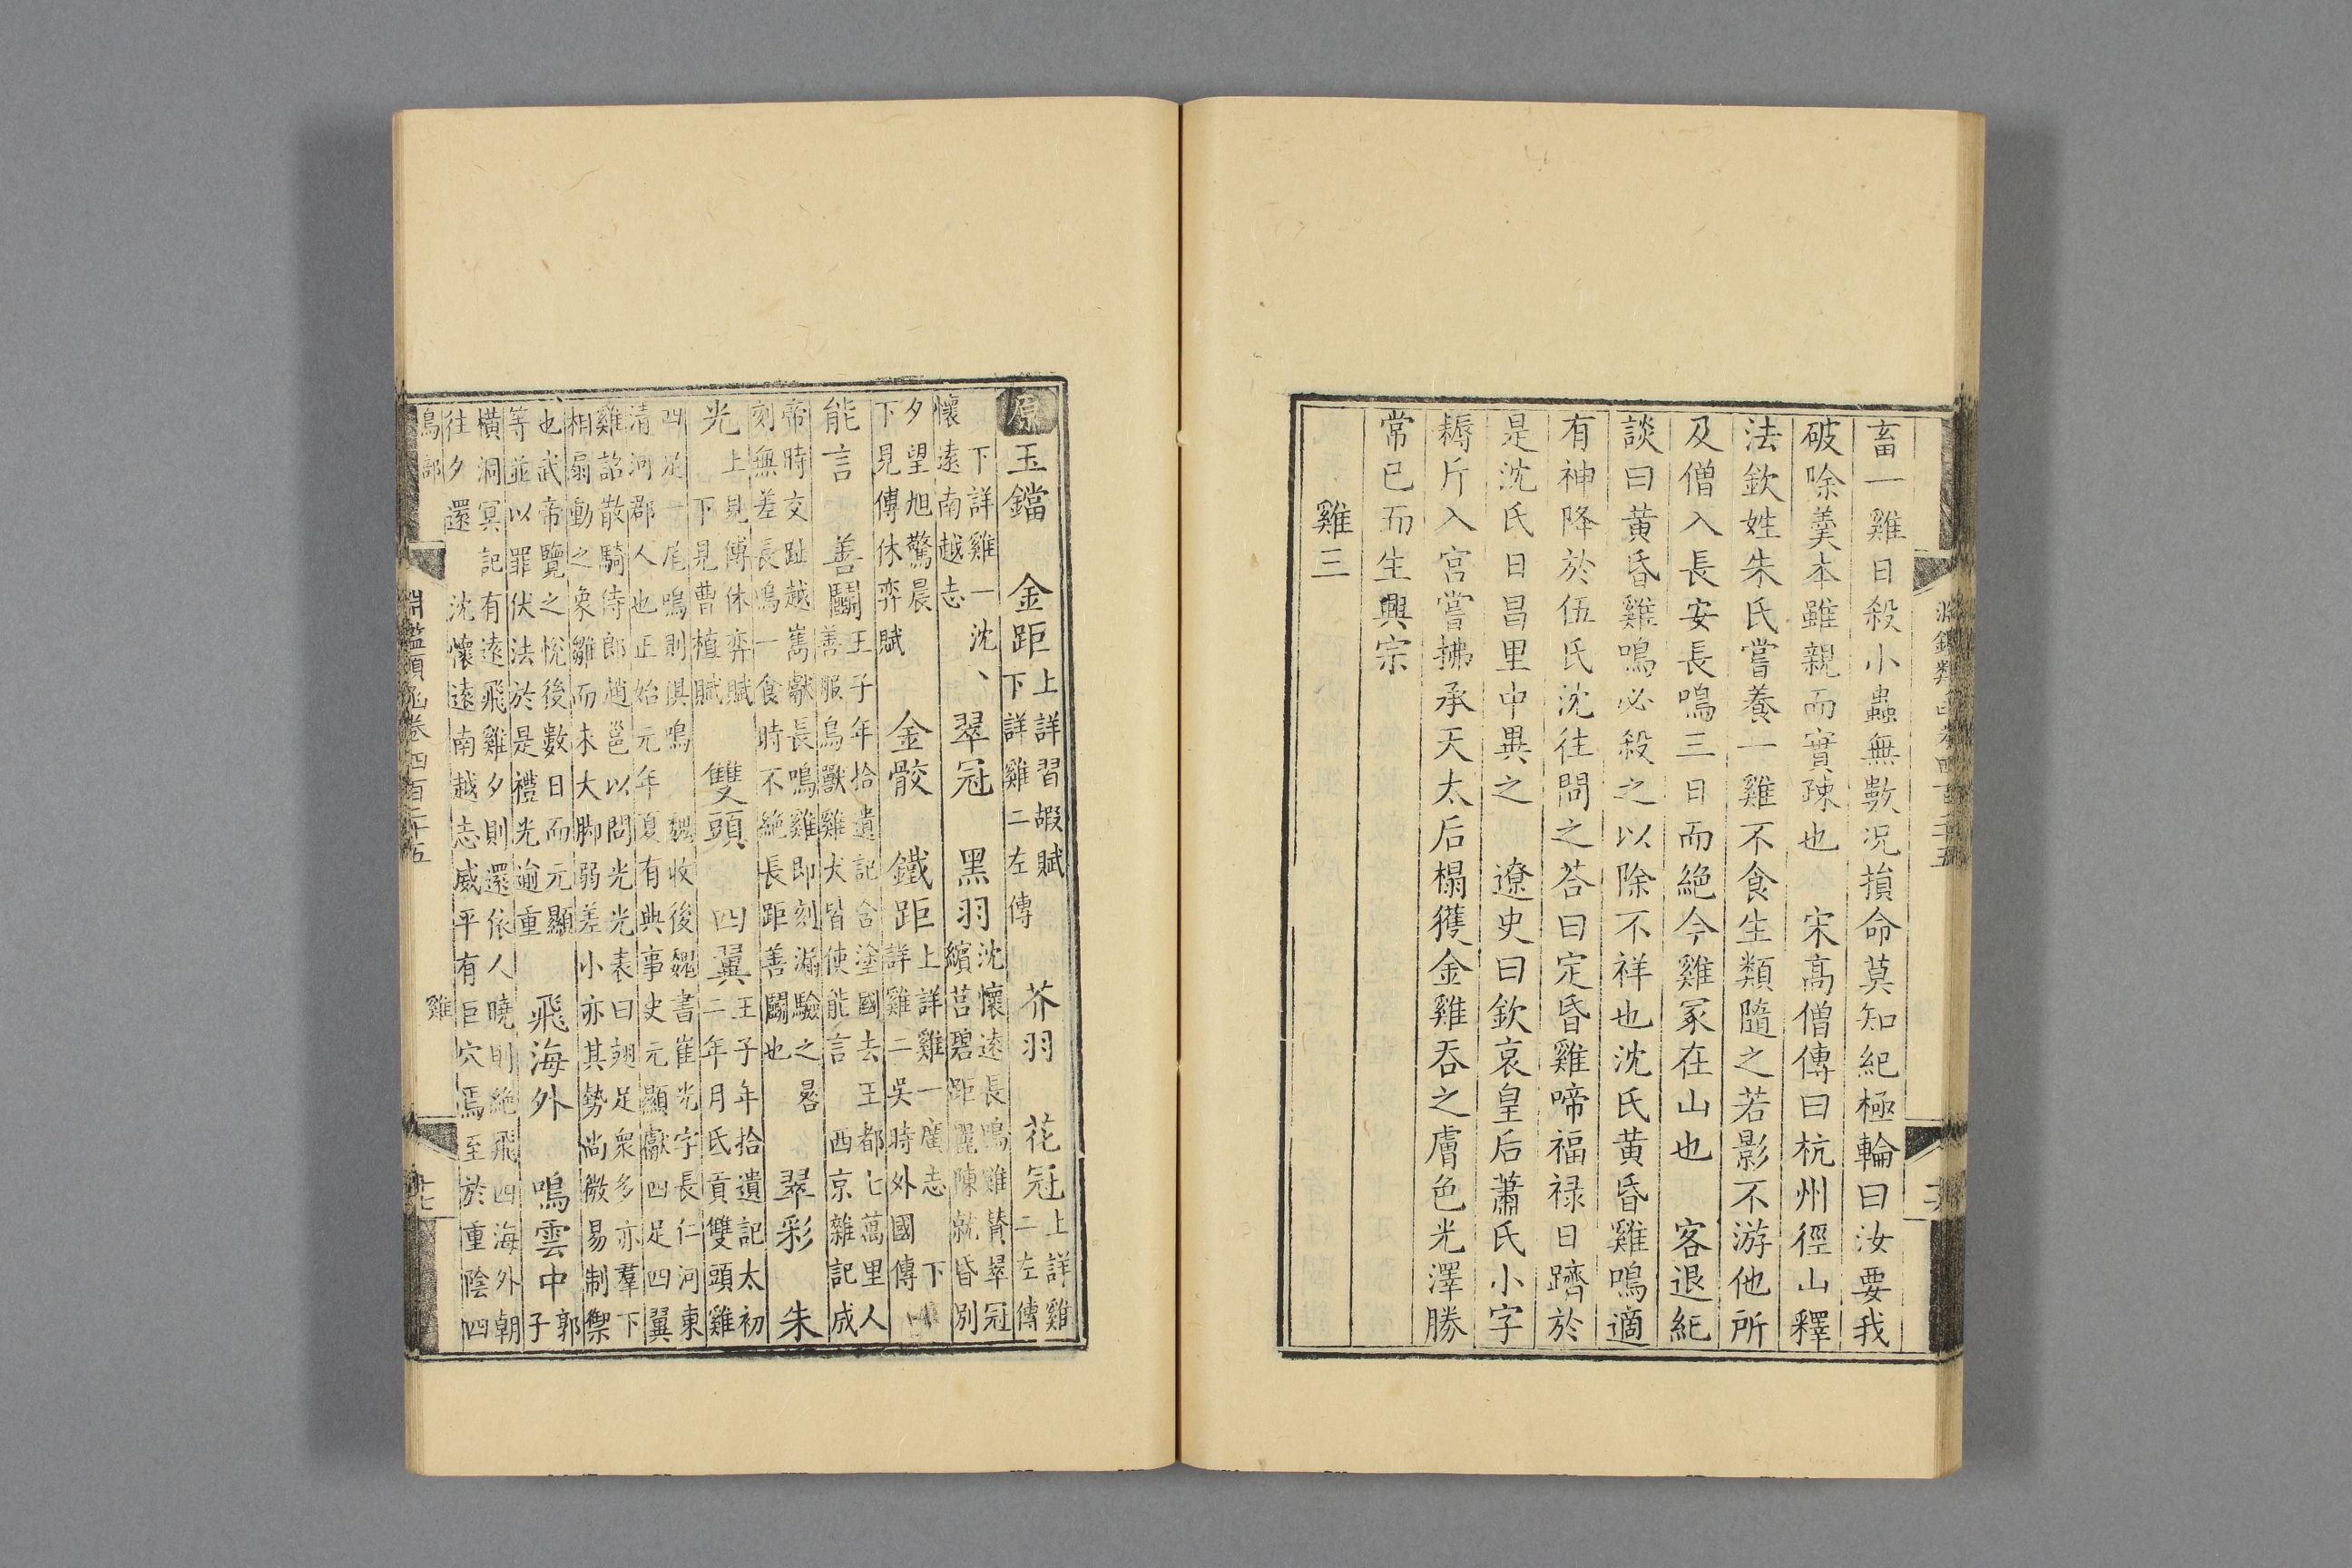 畜一雞日殺小蟲無數况損命莫知紀極輪曰汝要我
破除羹本雖親而實疎也　宋高僧傳曰杭州徑山釋
法欽姓朱氏嘗養一雞不食生類隨之若影不游他所
及僧入長安長鳴三日而絶今雞冢在山也　客退紀
談曰黄昏雞鳴必殺之以除不祥也沈氏黄昏雞鳴適
有神降於伍氏沈往問之荅曰定昏雞啼福禄日躋於
是沈氏日昌里中異之　遼史曰欽哀皇后蕭氏小字
耨斤入宫嘗拂承天太后榻獲金雞吞之膚色光澤勝
常已而生興宗
雞三
原玉鐺　金距上詳習嘏賦下詳雞二左傳　芥羽　花冠上詳雞二左傳
下詳雞一沈懷遠南越志　翠冠　黑羽沈懷遠長鳴雞賛翠冠繽莒碧距麗陳就昏别
夕望旭驚晨下見傅休弈賦　金骹　鐵距上詳雞一廣志下詳雞二吳時外國傳
能言　善鬭王子年拾遺記含塗國去王都七萬里人善服鳥獸雞犬皆使能言西京雜記成
帝時交趾越嶲獻長鳴雞即刻漏驗之晷刻無差長鳴一食時不絶長距善鬭也　翠彩　朱
光上見傅休弈賦下見曹植賦　雙頭　四翼王子年拾遺記太初二年月氏貢雙頭雞
四足一尾鳴則俱鳴　魏收後魏書崔光字長仁河東清河郡人也正始元年夏有典事史元顯獻四足四翼
雞詔散騎侍郎趙邕以問光光表曰翅足衆多亦羣下相扇動之象雛而未大脚弱差小亦其勢尚微易制禦
也武帝覽之悦後數日而元顯等並以罪伏法於是禮光逾重　飛海外　鳴雲中郭子
横洞冥記有遠飛雞夕則還依人曉則絶飛四海外朝往夕還　沈懷遠南越志威平有巨穴焉至於重陰四
鳥部　雞
淵鑑類函卷四百二十五